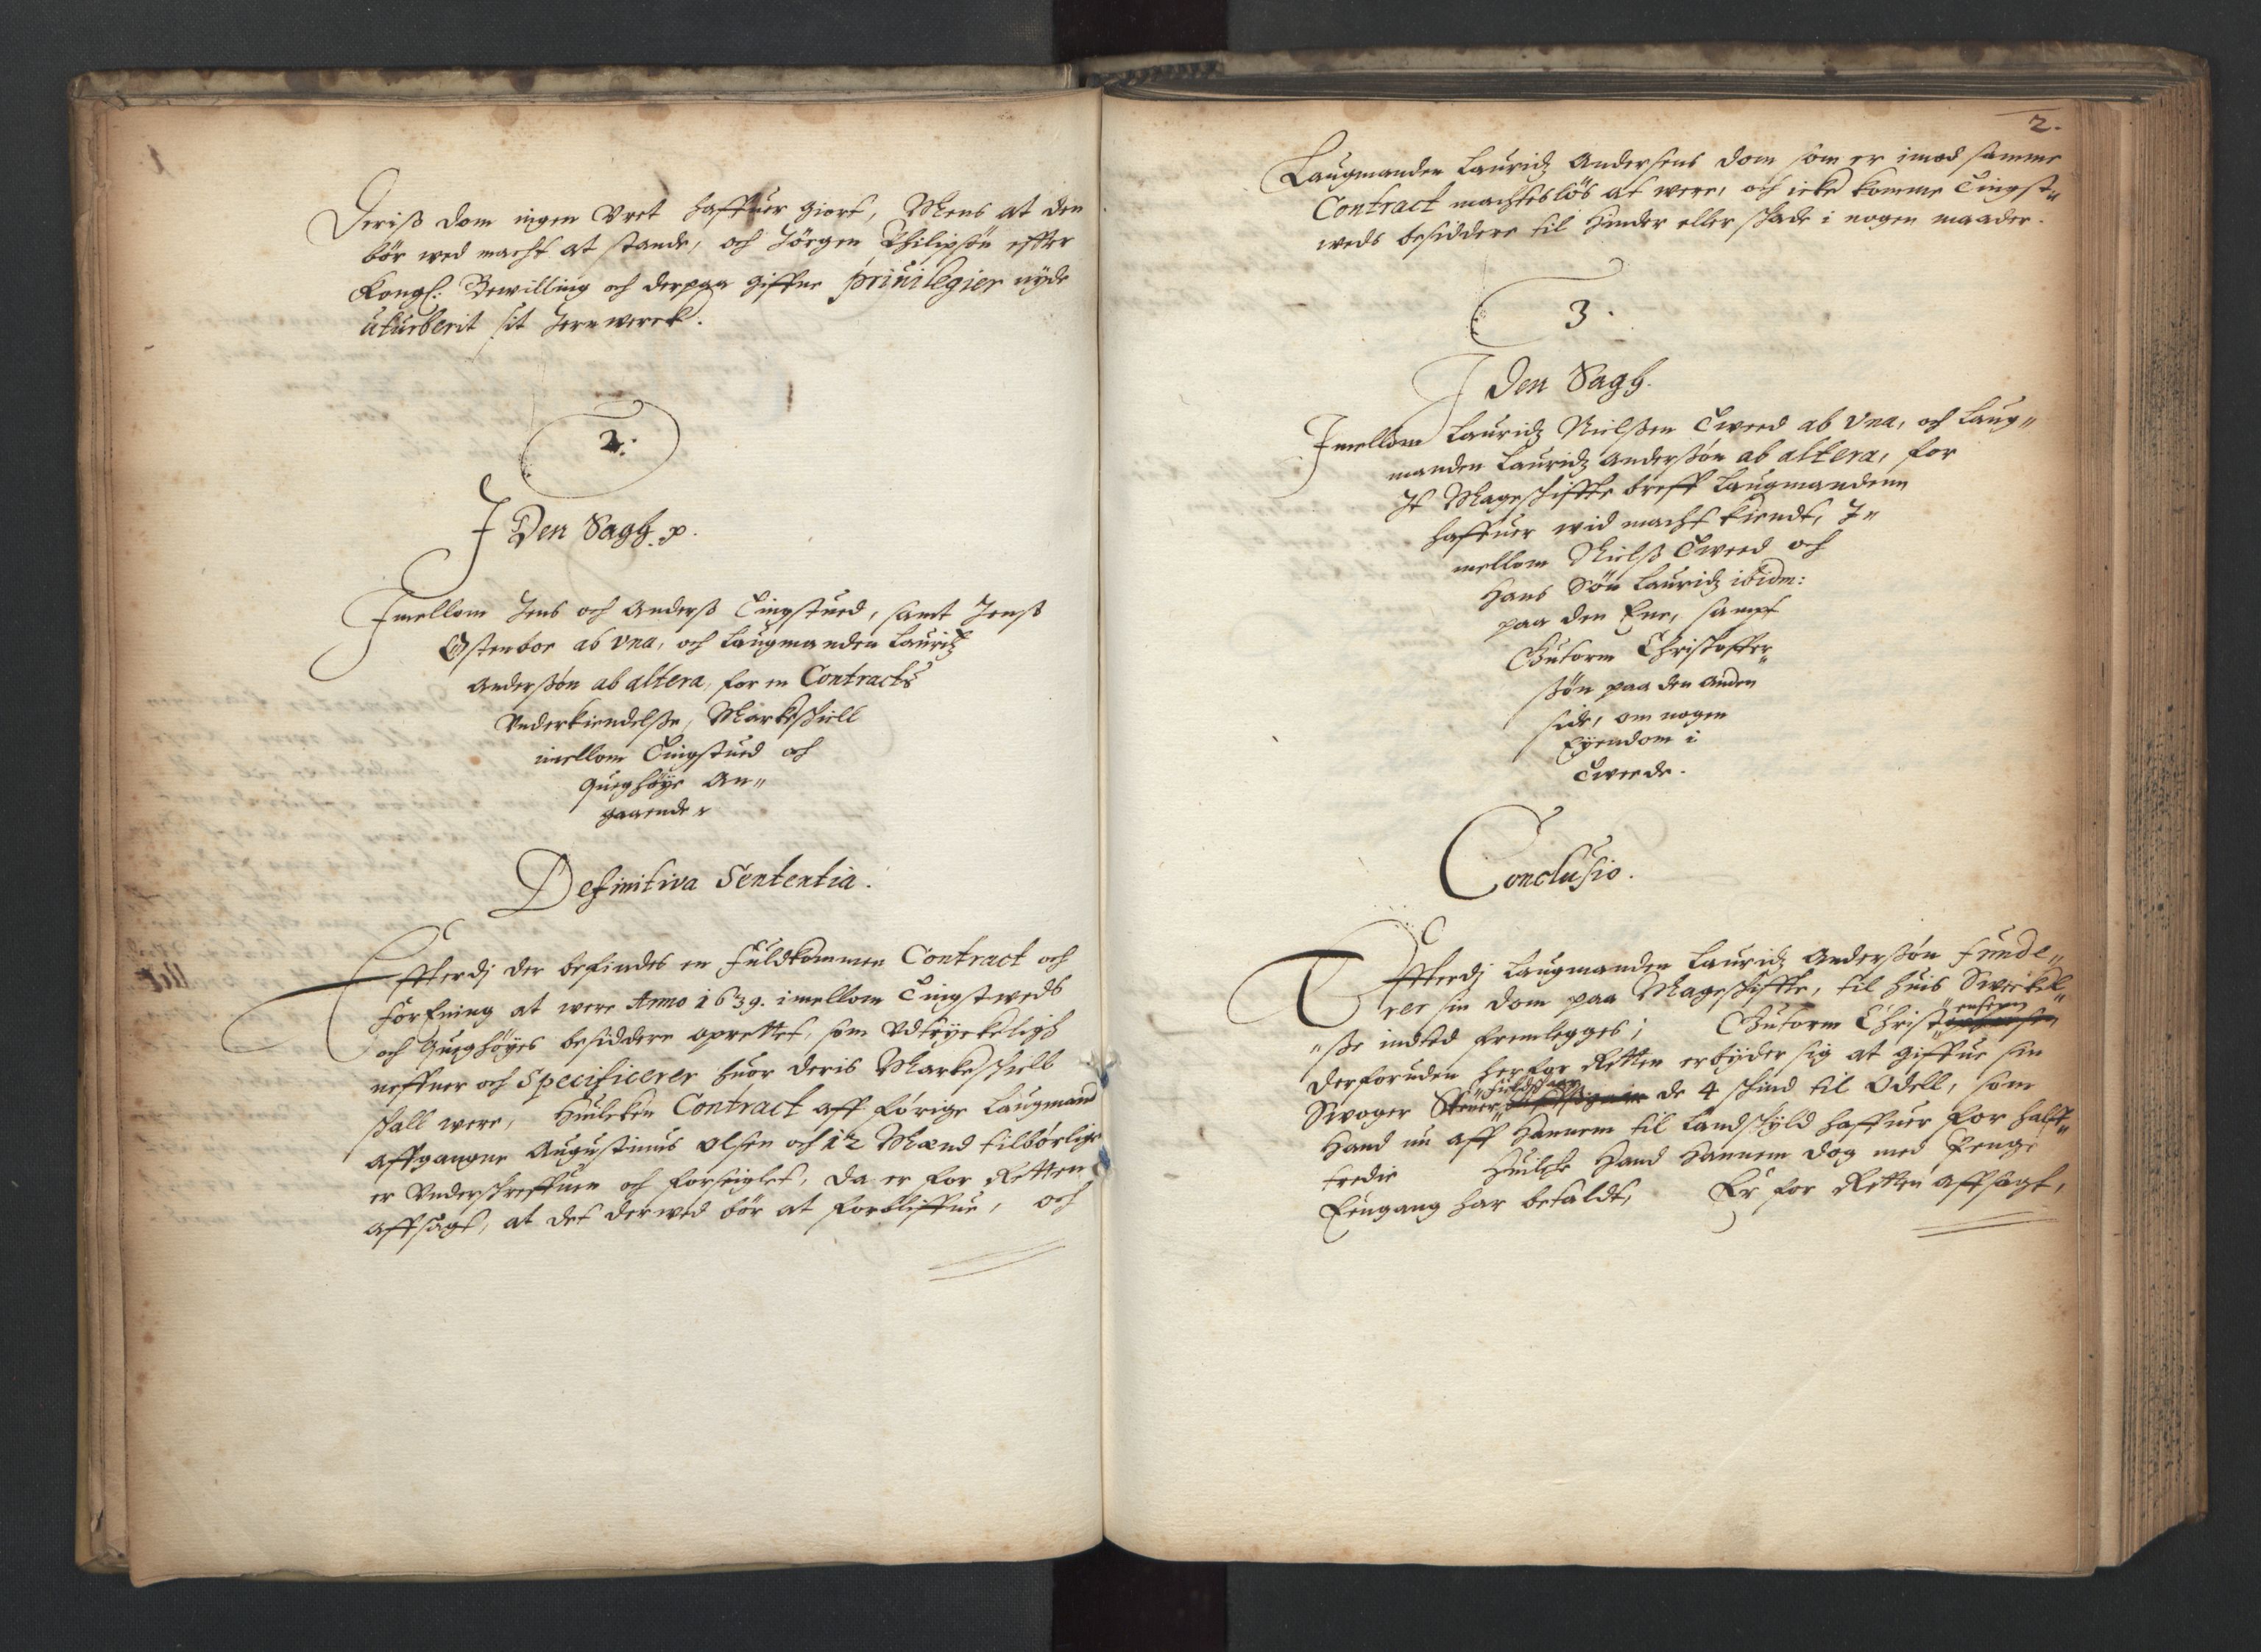 Deriß dom ingen Vret haffuer giort, Mens at den
bör wed macht at stande, och Jörgen Philipsön effter
Kongl: Bewilling och derpaa giffne privilegier nyde
uturberit sit Jernwerck.
2:
J Den Sagh. p.
Jmellom Jens och Anderß Tingstued, samt Jenß
Ostenboe ab vna, och Laugmanden Lauridz
Anderßön ab altera, for en Contracts
Vnderkiendelße, Markeskiell
imellom Tingstued och
Queghöye An„
gaaende
Definitiva Sententia.
Effterdj der befindes en fuldkommen Contract och
Forening at were Anno 1639. imellom Tingstweds
och Queghöyes besiddere oprettet, som vdtryckeligh
neffner och Specificerer huor deris Markeskiell
skall were, Huilcken Contract aff förige Laugmand
affgangne Augustinus Olsen och 12 Mænd tilbörlige
er Vnderskreffuen och forseiglet, da er for Retten
affsagt, at det derwed bör at forbliffue, och
2.
Laugmanden Lauridz Andersens dom som er imod samme
Contract machteslös at were, och icke komme Tingst„
weds besiddere til hinder eller skade i nogen maader.
3.
J Den Sagh.
Jmellom Lauridz Nielßen Tweed ab vna, och Laug„
manden Lauridz Anderßön ab altera, for
Jt Mageskiffte breff Laugmandenn
haffuer wid macht kiendt, J„
mellom Nielß Tweed och
hans Sön Lauridz ibidm:
paa den Ene, sampt
Gutorm Christoffer„
ßön paa den anden
side, om nogen
Eyendom i
Tweede.
Conclusio.
Effterdj Laugmanden Lauridz Anderßön funde„
rer sin dom paa Mageskiffte, til huis
„ße indted fremlegges; Gutorm Christ„ensen
derforuden herfor Retten erbyder sig at giffue sin
Swoger de 4 skind til Odell, som
hand nu aff hannem til Landskyld haffuer for halff„
tredie huilcke hand hannem dog med Penge
Eengang har betaldt, Er for Retten affsagt,